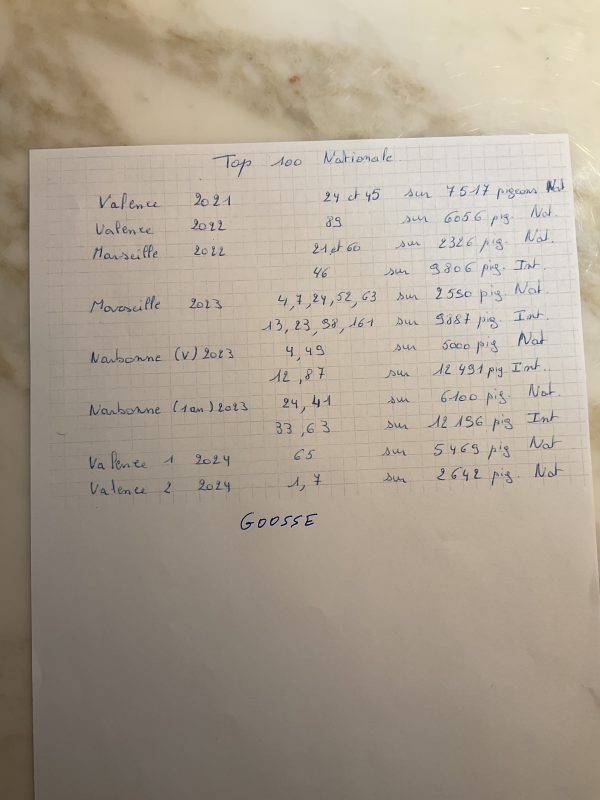 Top 100 Nationale
Valence 2021 24 et 45 sur 7517 pigeons Nat
Valence 2022 89 sur 6056 pig. Nat.
Marseille 2022 21 et 60 sur 2326 pig. Nat.
46 sur 9806 pig. Int.
Marseille 2023 4, 7, 24, 52, 63 sur 2590 pig. Nat.
13, 23, 98, 161 sur 9887 pig. Int.
Narbonne (V) 2023 4, 49 sur 5000 pig Nat
12, 87 sur 12 491 pig Int.
Narbonne (1an) 2023 24, 41 sur 6100 pig. Nat.
33, 63 sur 12 196 pig Int
Valence 1 2024 65 sur 5469 pig Nat
Valence 2 2024 1, 7 sur 2642 pig. Nat
GOOSSE